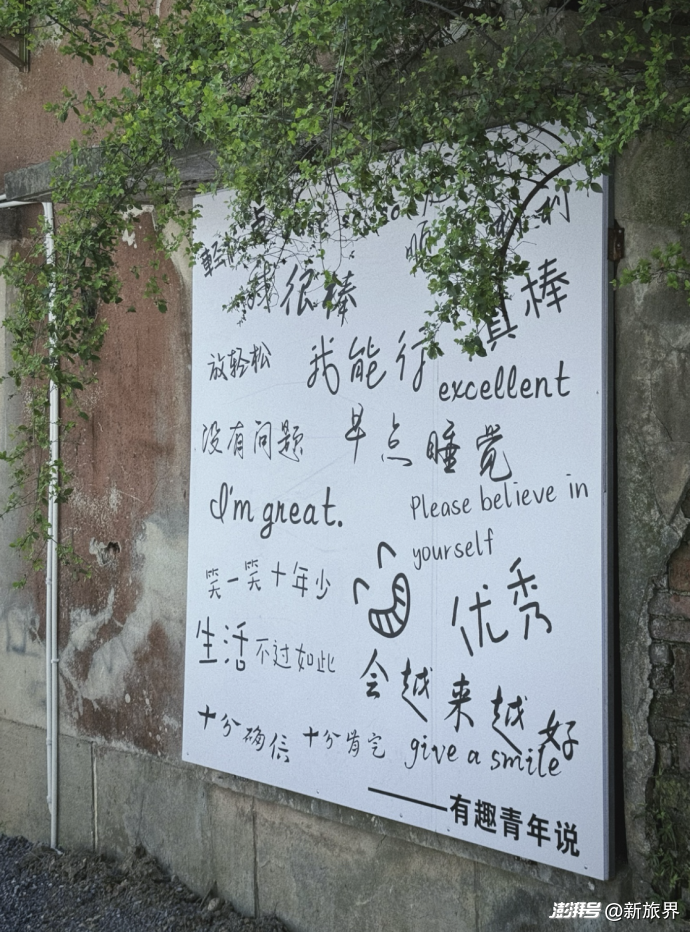 so so
我很棒
真棒
放轻松
我能行
excellent
没有问题
早点睡觉
I'm great.
Please believe in
yourself
笑一笑十年少
优秀
生活不过如此
会越来越好
十分确信 十分肯定
give a smile
——有趣青年说
澎湃号@新旅界